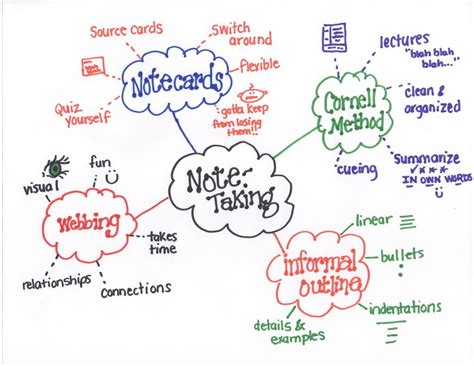 Source cards
Switch
around
flexible
Notecards
Quiz
Yourself
gotta keep
from losing
them!!
lectures
"blah blah
blah..."
Cornell
Method
clean &
organized
cueing
Summarize
IN OWN WORDS
Note-
Taking
visual
fun
Webbing
takes
time
relationships
connections
linear
bullets
informal
outline
indentations
details &
examples